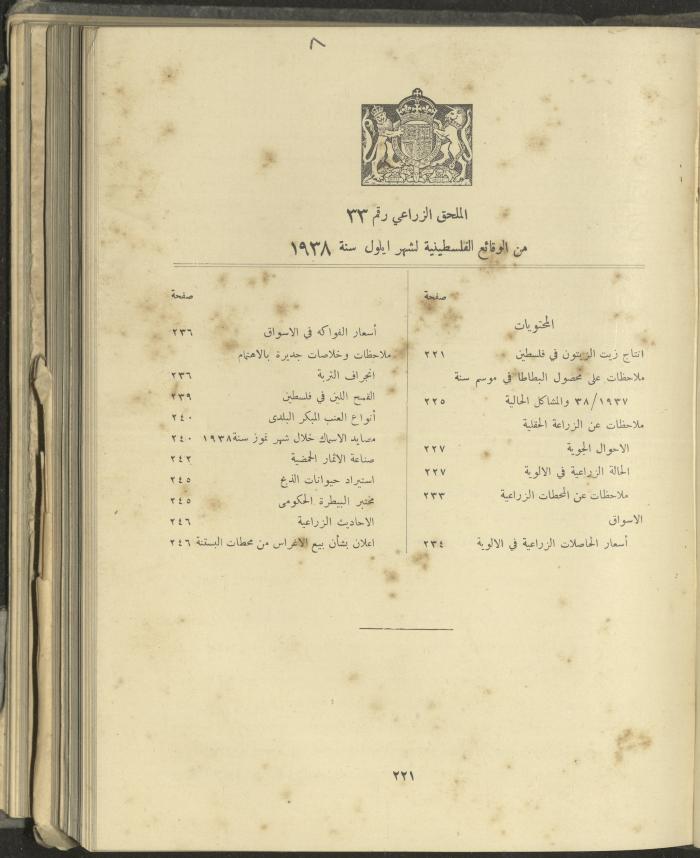 ٨
الملحق الزراعي رقم ٣٣
من الوقائع الفلسطينية لشهر ايلول سنة ١٩٣٨
صفحة
المحتويات
انتاج زيت الزيتون في فلسطين ٢٢١
ملاحظات على محصول البطاطا في موسم سنة
٣٨/١٩٣٧ والمشاكل الحالية ٢٢٥
ملاحظات عن الزراعة الحقلية
الاحوال الجوية ٢٢٧
الحالة الزراعية في الالوية ٢٢٧
ملاحظات عن المحطات الزراعية ٢٣٣
الاسواق
أسعار الحاصلات الزراعية في الالوية ٢٣٤
صفحة
أسعار الفواكه في الاسواق ٢٣٦
ملاحظات وخلاصات جديرة بالاهتمام
انجراف التربة ٢٣٦
القمح اللين في فلسطين ٢٣٩
أنواع العنب المبكر البلدى ٢٤٠
مصايد الاسماك خلال شهر تموز سنة ١٩٣٨ ٢٤٠
صناعة الاثمار الحمضية ٢٤٢
استيراد حيوانات الذبح ٢٤٥
مختبر البيطرة الحكومى ٢٤٥
الاحاديث الزراعية ٢٤٦
اعلان بشأن بيع الاغراس من محطات البستنة ٢٤٦
٢٢١